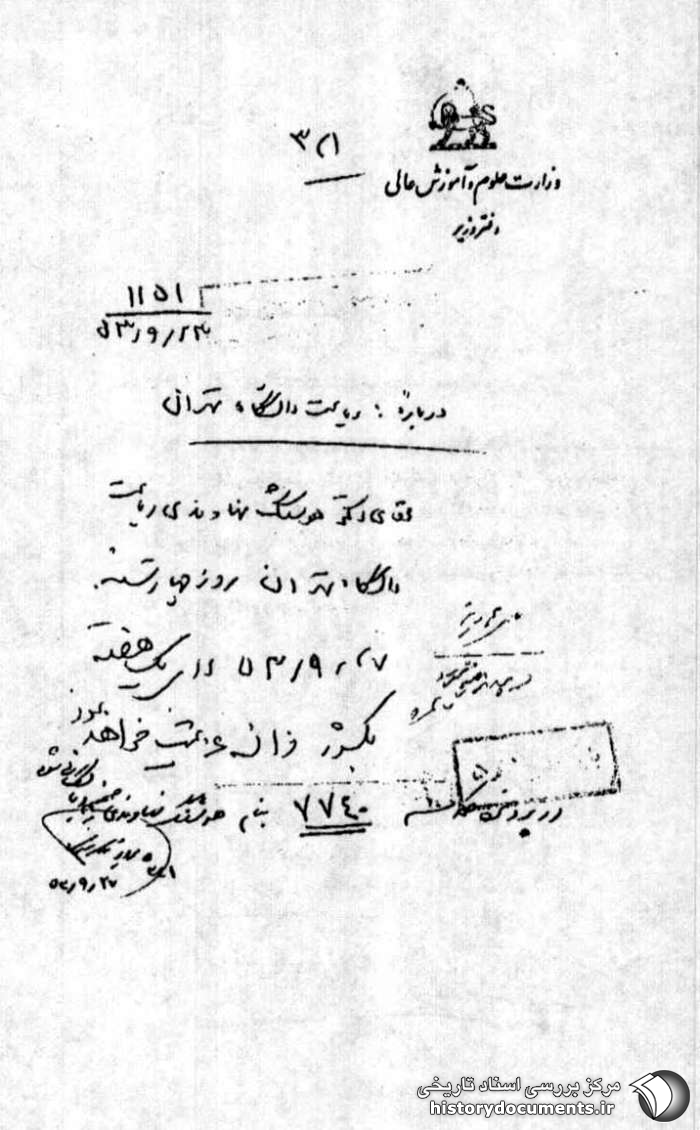 ۳/۱
وزارت علوم و آموزش عالی
دفتر وزیر
۱۱۵۱
۵۳/۹/۲۳
درباره : ریاست دانشگاه تهران
آقای دکتر هوشنگ نهاوندی ریاست
دانشگاه تهران روز چهارشنبه
۵۳/۹/۲۷ برای یک هفته
بکشور فرانسه عزیمت خواهد نمود
در پرونده ۷۷۴۰ بنام هوشنگ نهاوندی
۵۳/۹/۲۷
مرکز بررسی اسناد تاریخی
historydocuments.ir